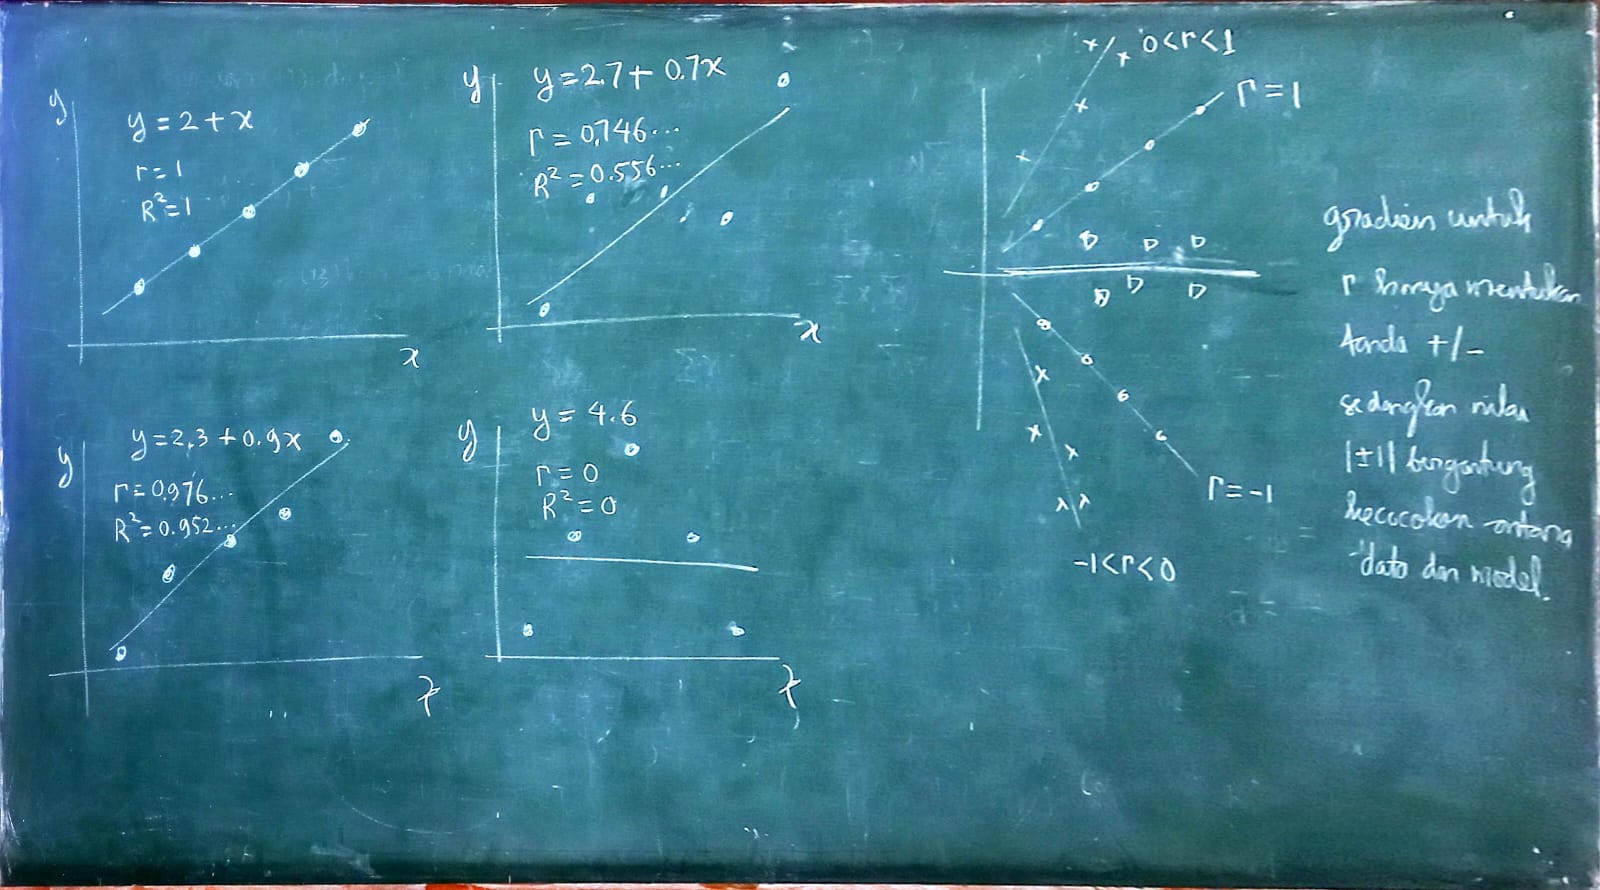 y
y = 2 + x
r = 1
R² = 1
x
y
y = 2.7 + 0.7x
r = 0,746...
R² = 0.556...
x
y
y = 2,3 + 0.9x
r = 0.976...
R² = 0.952...
x
y
y = 4.6
r = 0
R² = 0
x
0 < r < 1
r = 1
r = -1
-1 < r < 0
gradien untuk
r hanya mentukan
tanda +/-
sedangkan nilai
|±1| bergantung
kecocokan antara
data dan model.